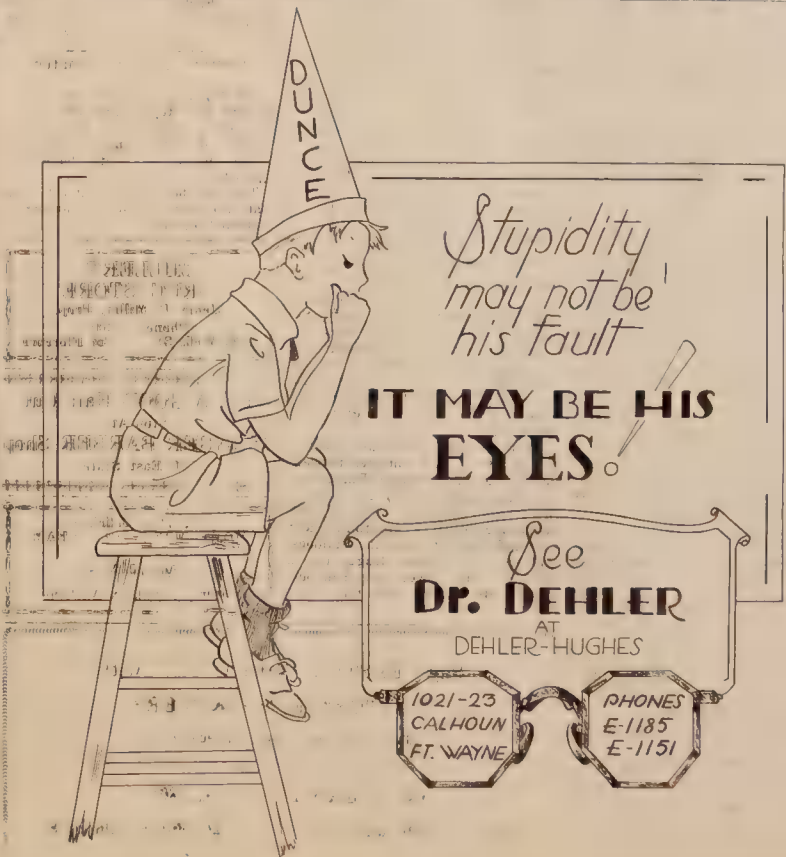 DUNCE
Stupidity
may not be
his fault
IT MAY BE HIS
EYES!
See
Dr. DEHLER
AT
DEHLER-HUGHES
1021-23
CALHOUN
FT. WAYNE
PHONES
E-1185
E-1151